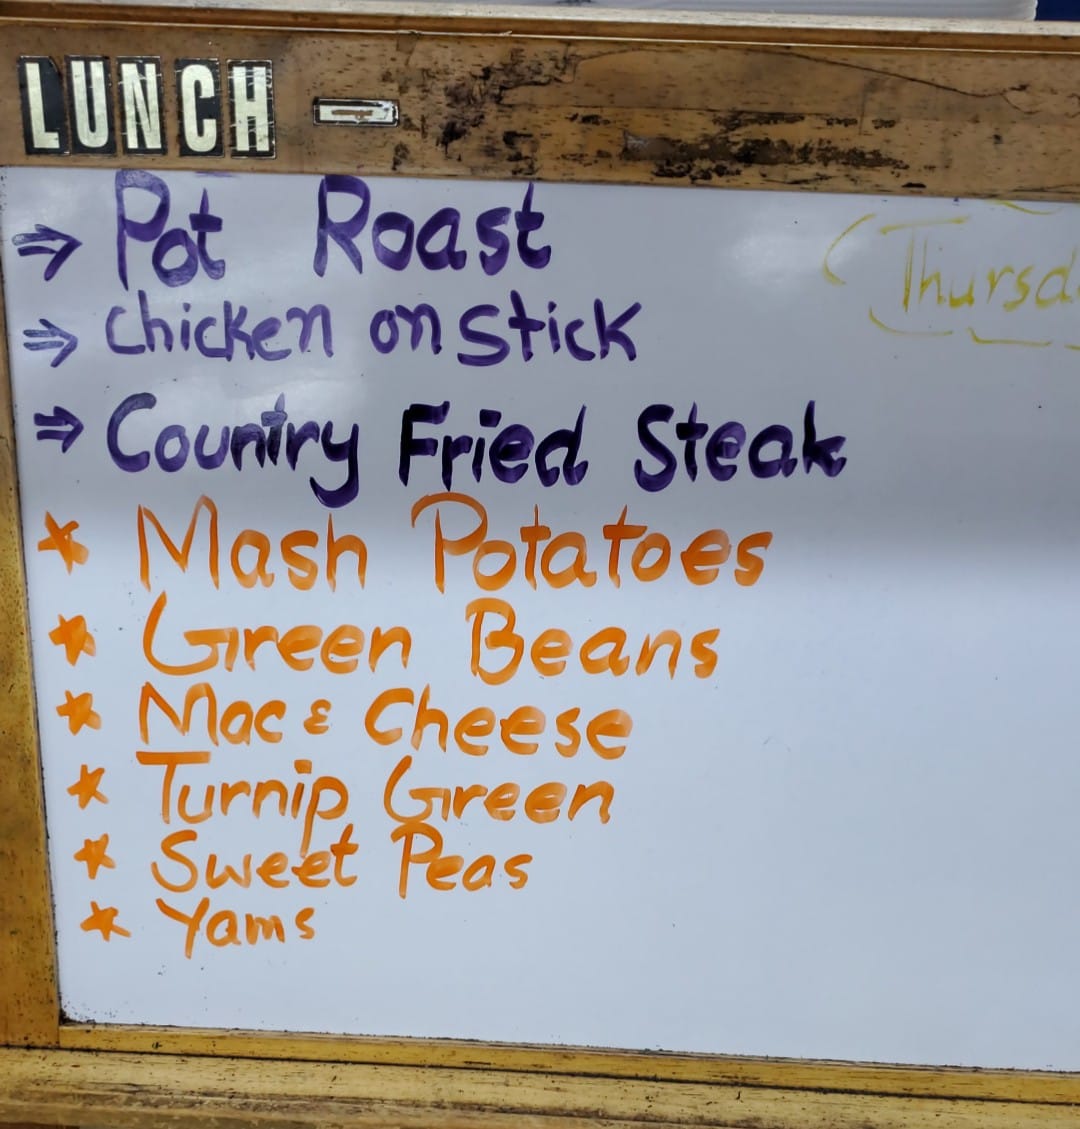 LUNCH -
⇒ Pot Roast
⇒ chicken on stick
⇒ Country Fried Steak
* Mash Potatoes
* Green Beans
* Mac & Cheese
* Turnip Green
* Sweet Peas
* Yams
(Thursda